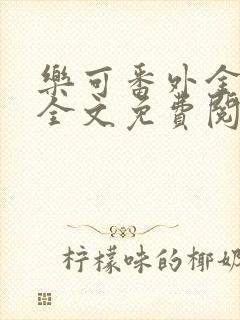 樂可番外全
全文免費閱
柠檬味的椰奶